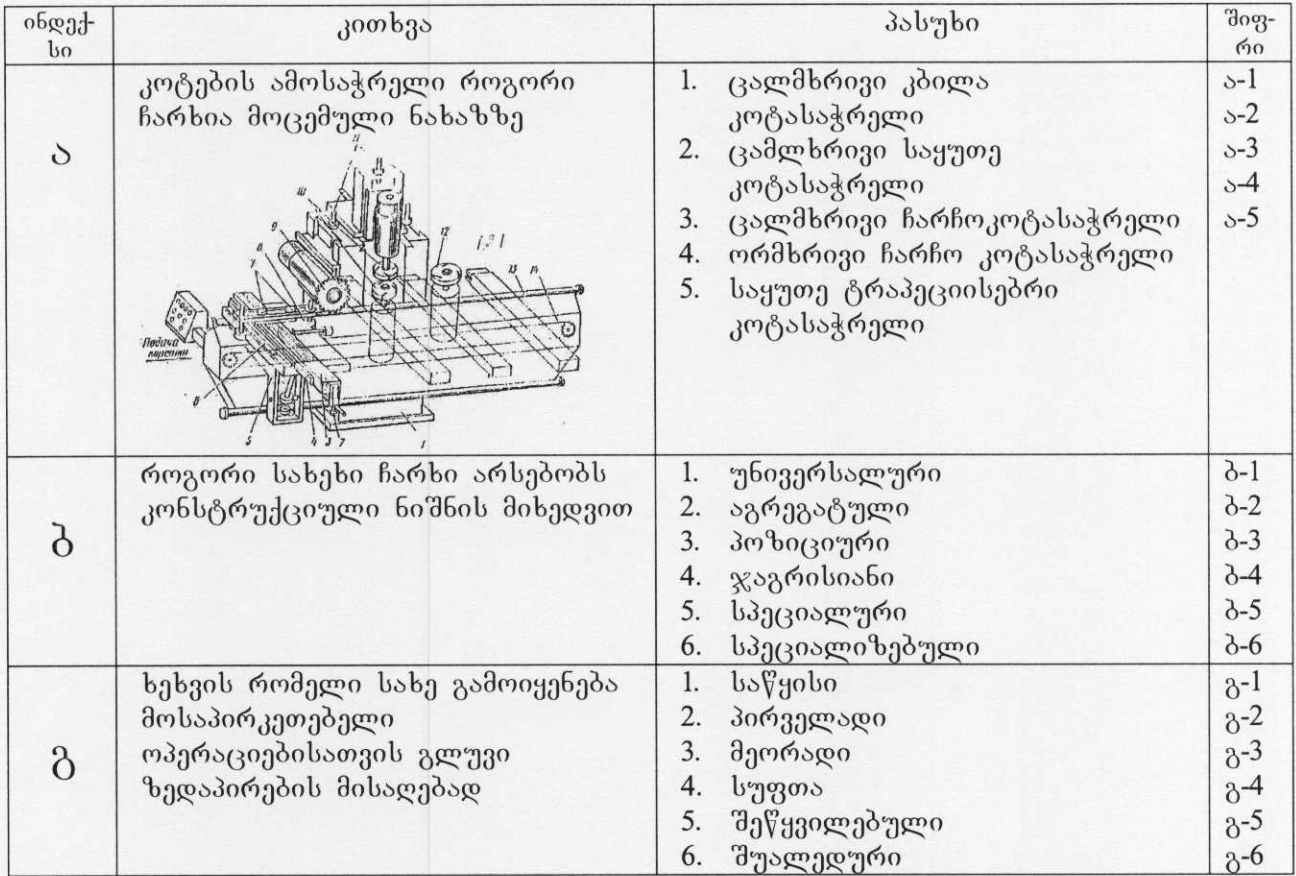 ინდექ-
სი
კითხვა
პასუხი
შიფ-
რი
ა
კოტების ამოსაჭრელი როგორი
ჩარხია მოცემული ნახაზზე
10
9
8
7
12
13
14
Подача
6
5
4
3
7
1
1. ცალმხრივი კბილა
კოტასაჭრელი
2. ცამლხრივი საყუთე
კოტასაჭრელი
3. ცალმხრივი ჩარჩოკოტასაჭრელი
4. ორმხრივი ჩარჩო კოტასაჭრელი
5. საყუთე ტრაპეციისებრი
კოტასაჭრელი
ა-1
ა-2
ა-3
ა-4
ა-5
ბ
როგორი სახეხი ჩარხი არსებობს
კონსტრუქციული ნიშნის მიხედვით
1. უნივერსალური
2. აგრეგატული
3. პოზიციური
4. ჯაგრისიანი
5. სპეციალური
6. სპეციალიზებული
ბ-1
ბ-2
ბ-3
ბ-4
ბ-5
ბ-6
გ
ხეხვის რომელი სახე გამოიყენება
მოსაპირკეთებელი
ოპერაციებისათვის გლუვი
ზედაპირების მისაღებად
1. საწყისი
2. პირველადი
3. მეორადი
4. სუფთა
5. შეწყვილებული
6. შუალედური
გ-1
გ-2
გ-3
გ-4
გ-5
გ-6